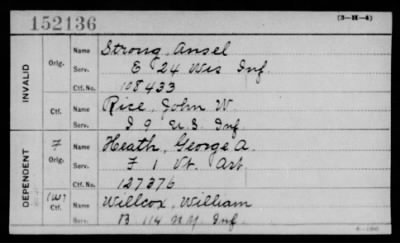 152136
(3—H—4)
INVALID
Orig.
Name Strong, Ansel
Serv. E 24 Wis Inf.
Ctf. No. 108433
Ctf.
Name Rice, John W.
Serv. I 9 U.S. Inf.
DEPENDENT
F
Orig.
Name Heath, George A.
Serv. F 1 Vt. Art.
Ctf. No. 127376
(W)
Ctf.
Name Willcox, William
Serv. B 114 N.Y. Inf.